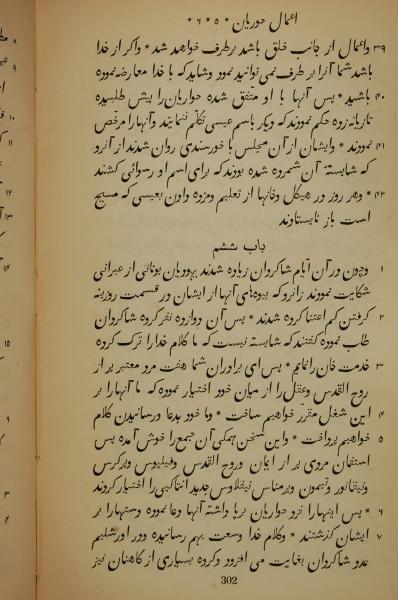 اعمال حواریان * ۵ * ۶ *
۳۹ واعمال از جانب خلق باشد برطرف خواهد شد * واکر از خدا
باشد شما آنرا برطرف نمی توانید نمود وشاید که با خدا معارضه نموده
۴۰ باشید * پس آنها با او متفق شده حواریان را پیش طلبیده
تازیانه زده حکم نمودند که دیکر باسم عیسی تکلّم ننمایند وآنها را مرخص
۴۱ نمودند * وایشان از آن مجلس با خورسندی روان شدند از آنرو
که شایستهٔ آن شمرده شده بودند که برای اسم او رسوائی کشند
۴۲ * وهر روز در هیکل وخانها از تعلیم ومژده دادن بعیسی که مسیح
است باز نایستادند
باب ششم
۱ وچون در آن ایّام شاکردان زیاده شدند یهودیان یونانی از عبرانی
شکایت نمودند زانرو که بیوه‌های آنها از ایشان در قسمت روزینه
۲ کرفتن کم اعتنا کرده شدند * پس آن دوازده نفر کروه شاکردان
طلب نموده کفتند که شایسته نیست که ما کلام خدا را ترک کرده
۳ خدمت خان را نمایم * پس ای برادران شما هفت مرد معتبر پر از
روح القدس وعقل را از میان خود اختیار نموده که ما آنها را بر
۴ این شغل مقرّر خواهیم ساخت * وما خود بدعا ورسانیدن کلام
۵ خواهیم پرداخت * واین سخن همکی آن جمع را خوش آمده پس
استفان مردی پر از ایمان وروح القدس وفیلپوس وپرکرس
ونیقانور وتیمون وپرمناس ونیقلاوس جدید انتاکیی را اختیار کردند
۶ * پس اینها را نزد حواریان برپا داشته آنها دعا نموده ودستها بر
۷ ایشان کذاشتند * وکلام خدا وسعت بهم رسانیده ودر اورشلیم
عدد شاکردان بغایت می افزود وکروه بسیاری از کاهنان نیز
302